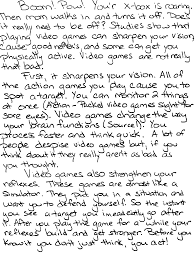 Boom! Pow! Your x-box is roaring.
Then mom walks in and turns it off. Does
it really need to be off? Studies show that
playing video games can sharpen your vision,
cause good reflexes, and some can get you
physically active. Video games are not really
that bad.
First, it sharpens your vision. All of
the action games you play cause you to
spot a target. You can monitor a things
at once (Action-Packed video games sight for
sore eyes). Video games change the way
your brain functions (source 1). You
process faster and think quick. A lot of
people despise video games but, if you
think about it they really aren't as bad as
you thought.
Video games also strengthen your
reflexes. These games are almost like a
simulator. They put you in a situation and
want you to defend yourself. So the instant
you see a target you immediately go after
it. After you play the game for a while your
reflexes build and get stronger. Before you
know it you don't just think, you act!